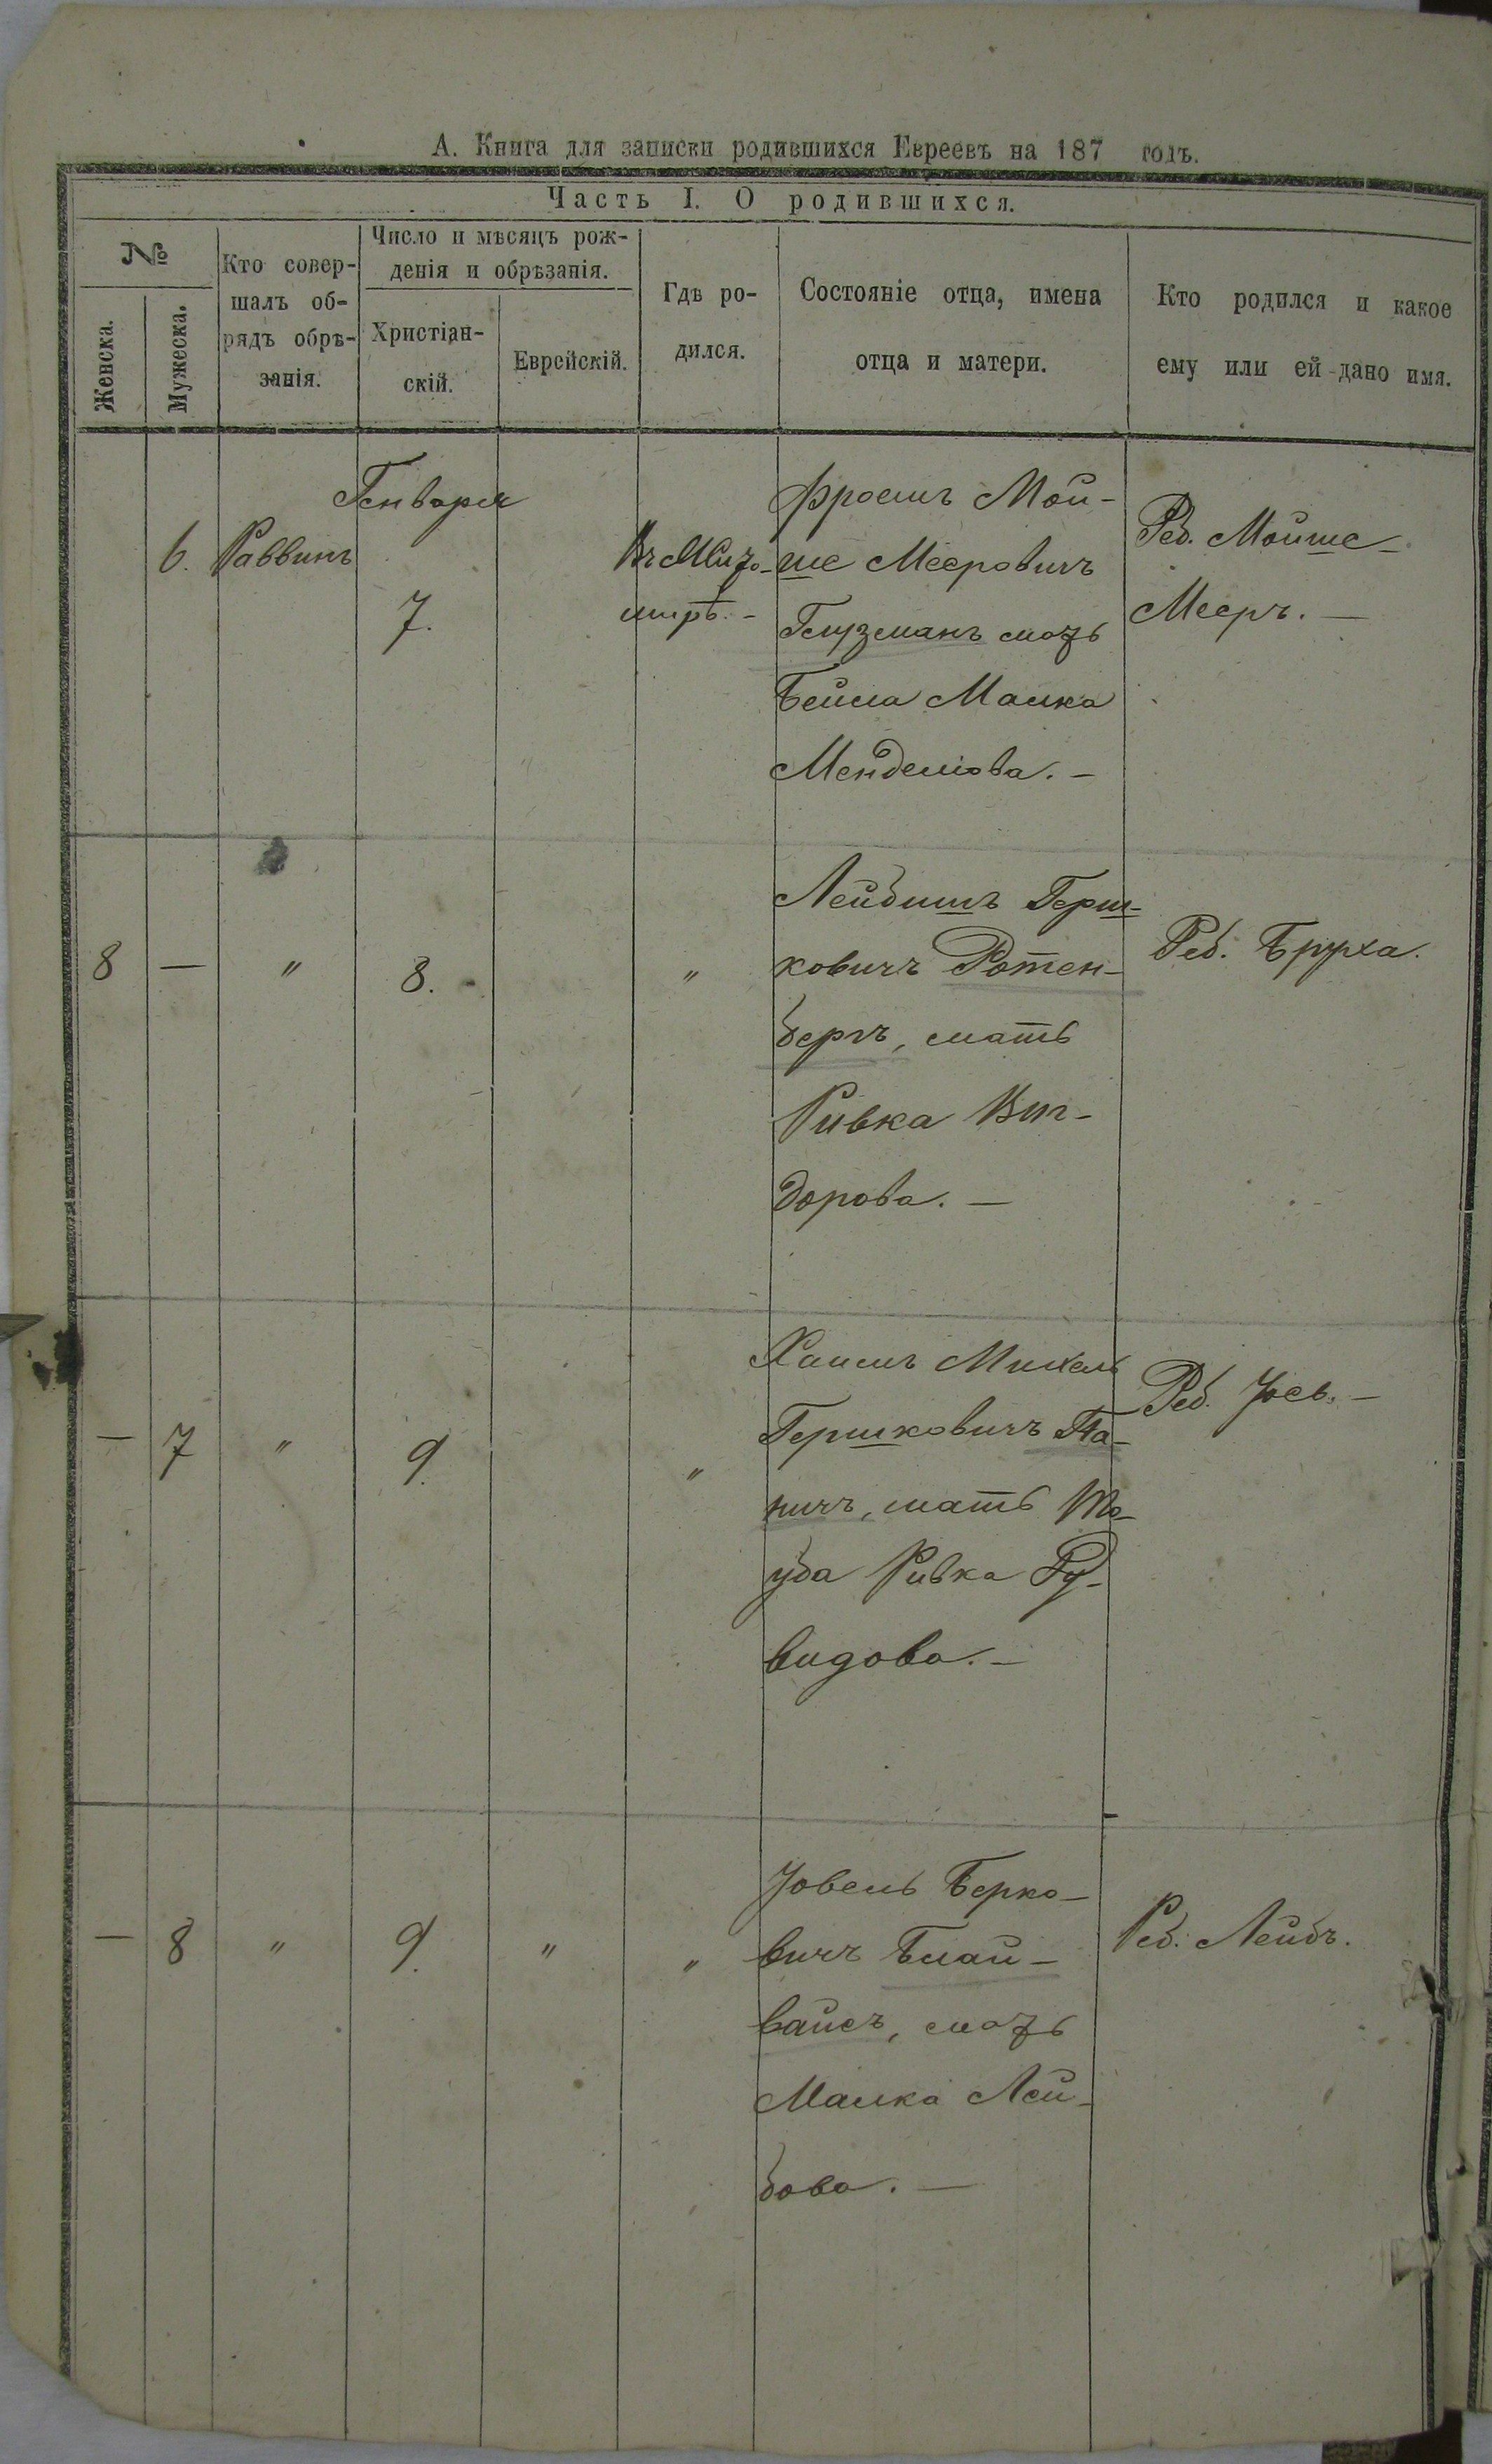 А. Книга для записки родившихся Евреевъ на 187 годъ.
Часть I. О родившихся.
№
Женска.
Мужеска.
Кто совер-
шалъ об-
рядъ обрѣ-
занія.
Число и мѣсяцъ рож-
денія и обрѣзанія.
Христіан-
скій.
Еврейскій.
Гдѣ ро-
дился.
Состояніе отца, имена
отца и матери.
Кто родился и какое
ему или ей дано имя.
Генваря
6. Раввинъ
7.
Въ Жито-
мирѣ. -
Фроимъ Мой-
ше Мееровичъ
Глузманъ мать
Бейла Малка
Менделіова. -
Реб. Мойше-
Мееръ. —
8 — " 8. "
Лейбишъ Герш-
ковичъ Ротен-
бергъ, мать
Ривка Виг-
дорова. —
Реб. Бруха.
— 7 " 9. "
Хаимъ Михель
Гершковичъ Па-
ничъ, мать То-
уба Ривка Ру-
видова. -
Реб. Іось. -
— 8 " 9. " "
Іовель Берко-
вичъ Блай-
вайсъ, мать
Малка Лей-
бова. —
Реб. Лейбъ.